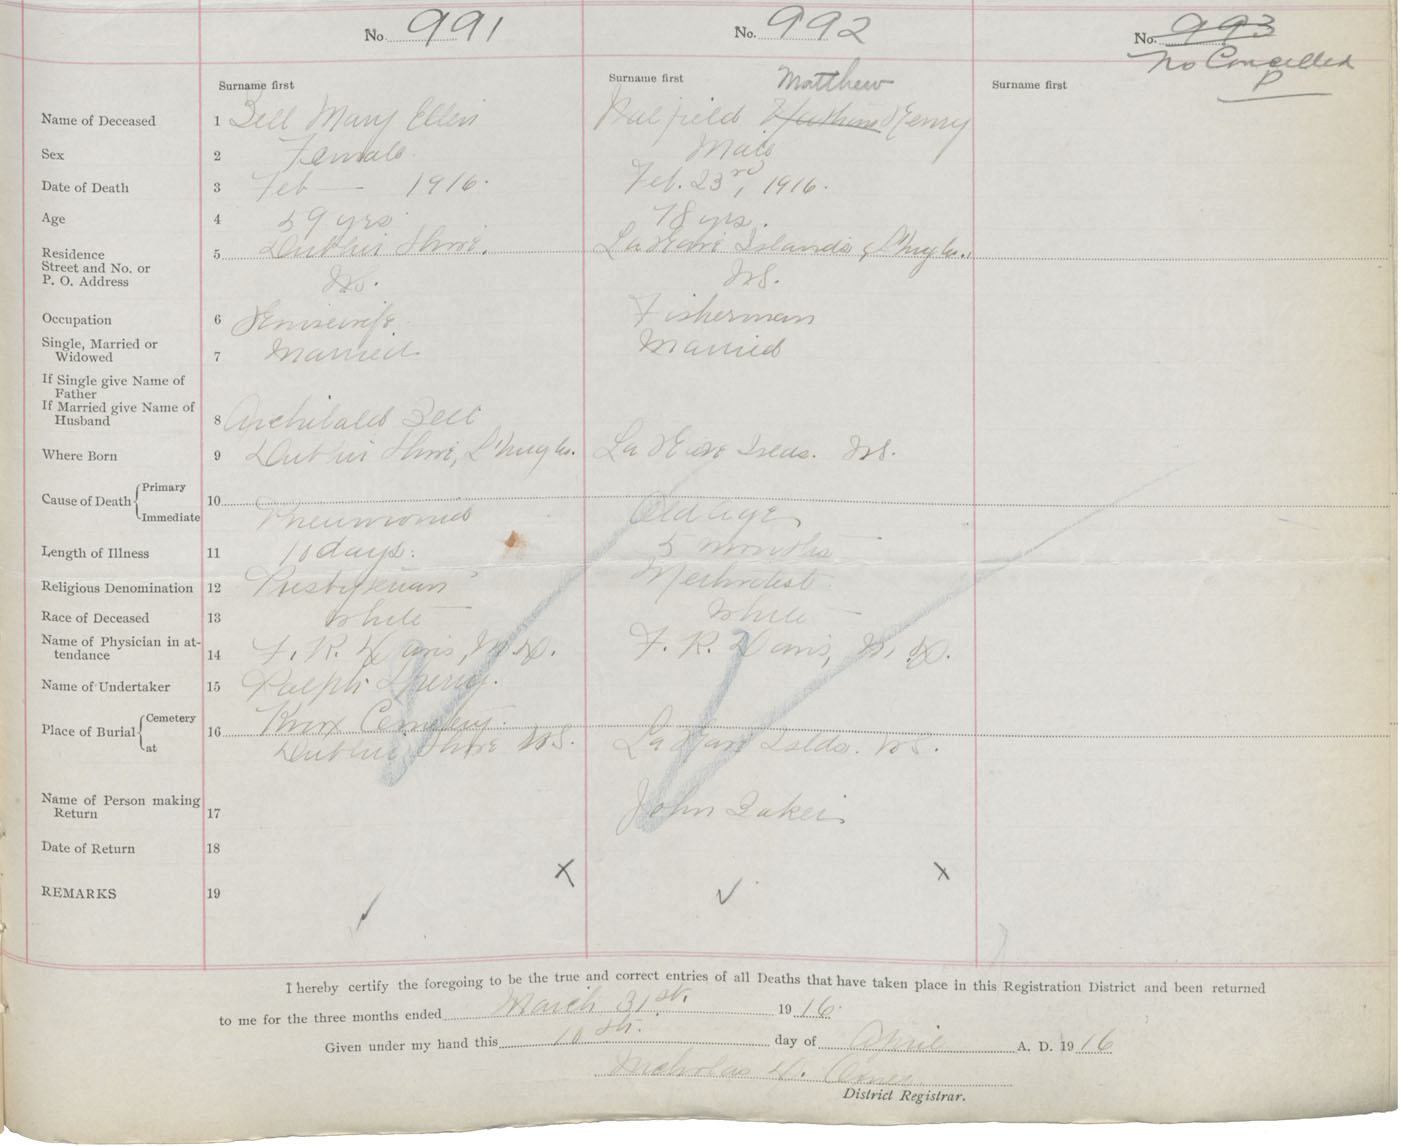 No. 991
No. 992
No. 993
No Cancelled
P
Surname first
Surname first Matthew
Surname first
Name of Deceased 1 Bell Mary Ellen Henry
Sex 2 Female Male
Date of Death 3 Feb — 1916. Feb. 23rd, 1916.
Age 4 59 yrs. 78 yrs.
Residence
Street and No. or
P. O. Address
5 Dublin Shore, LaHave Islands,
NS. NS.
Occupation 6 Housewife. Fisherman
Single, Married or
Widowed 7 Married Married
If Single give Name of
Father
If Married give Name of
Husband 8 Archibald Bell
Where Born 9 Dublin Shore, LaHave Islds. NS.
Cause of Death { Primary
Immediate 10 Pneumonia Old age
Length of Illness 11 10 days. 5 months
Religious Denomination 12 Presbyterian Methodist
Race of Deceased 13 White White
Name of Physician in at-
tendance 14 F. R. Davis, M.D. F. R. Davis, M.D.
Name of Undertaker 15 Ralph Sperry.
Place of Burial { Cemetery
at 16 Knox Cemetery.
Dublin Shore NS. LaHave Islds. NS.
Name of Person making
Return 17 John Baker
Date of Return 18
x x
REMARKS 19 ✓ ✓
I hereby certify the foregoing to be the true and correct entries of all Deaths that have taken place in this Registration District and been returned
to me for the three months ended March 31st. 1916.
Given under my hand this 10th. day of April A. D. 1916
Nicholas
District Registrar.